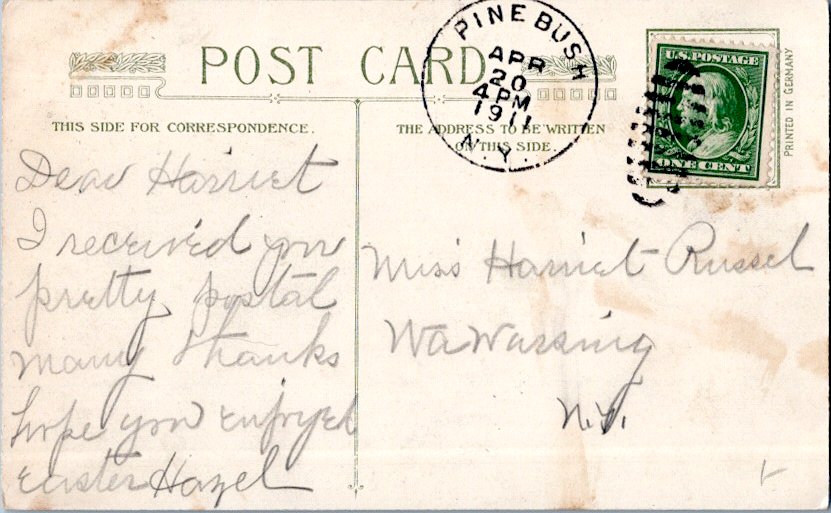 POST CARD
PINE BUSH
APR
20
4 PM
1911
N.Y.
U.S. POSTAGE
ONE CENT
PRINTED IN GERMANY
THIS SIDE FOR CORRESPONDENCE.
THE ADDRESS TO BE WRITTEN
ON THIS SIDE.
Dear Harriet
I received your
pretty postal
many thanks
hope you enjoyed
easter Hazel
Miss Harriet Russel
WaWarsing
N.Y.